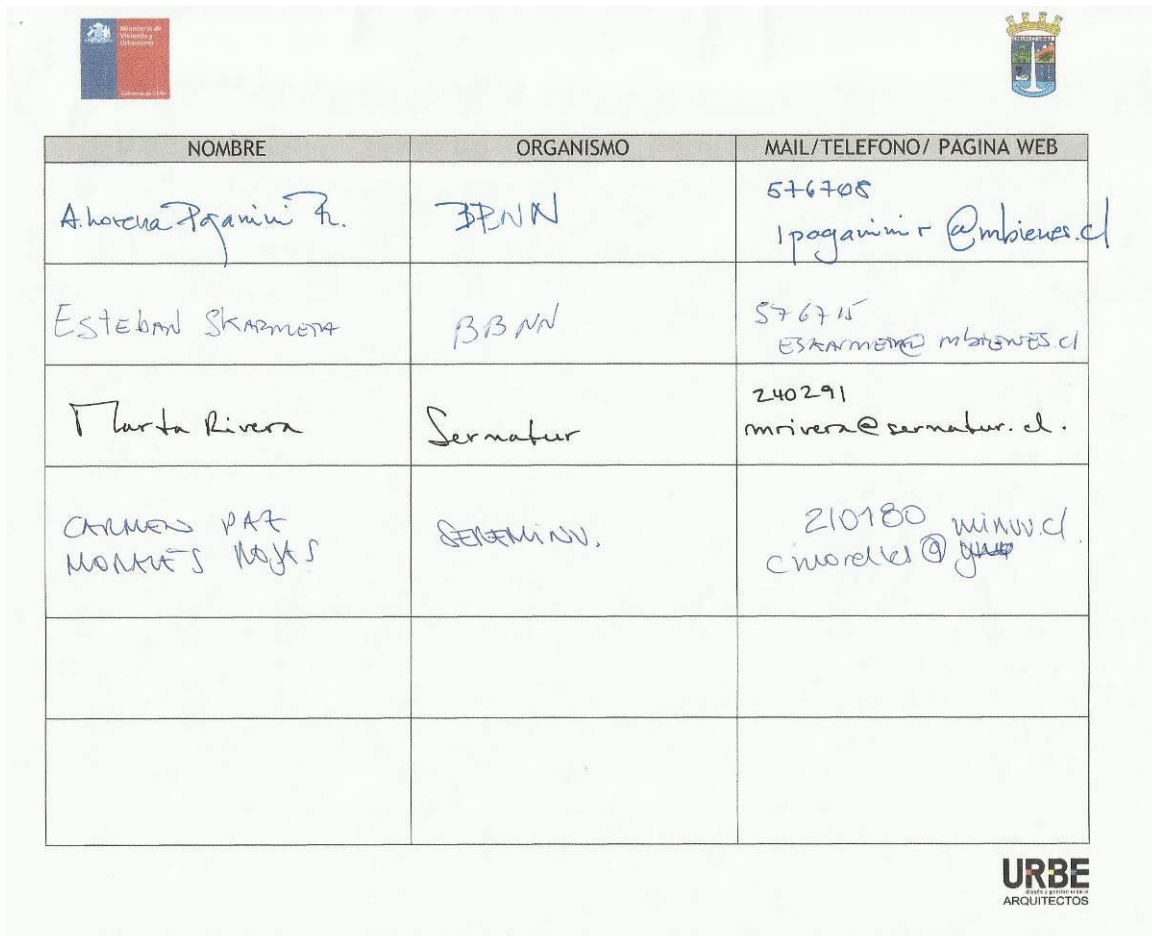 Ministerio de
Vivienda y
Urbanismo
Gobierno de Chile
NOMBRE ORGANISMO MAIL/TELEFONO/ PAGINA WEB
A. Lorena Paganini R. BBNN 576708
lpaganinir@mbienes.cl
ESTEBAN SKARMETA BBNN 576715
ESKARMETA@mbIENES.cl
Marta Rivera Sernatur 240291
mrivera@sernatur.cl.
CARMEN PAZ
MORALES ROJAS SEREMINVU. 210180
cmorales@ minvu.cl.
URBE
diseño y gestión urbana
ARQUITECTOS